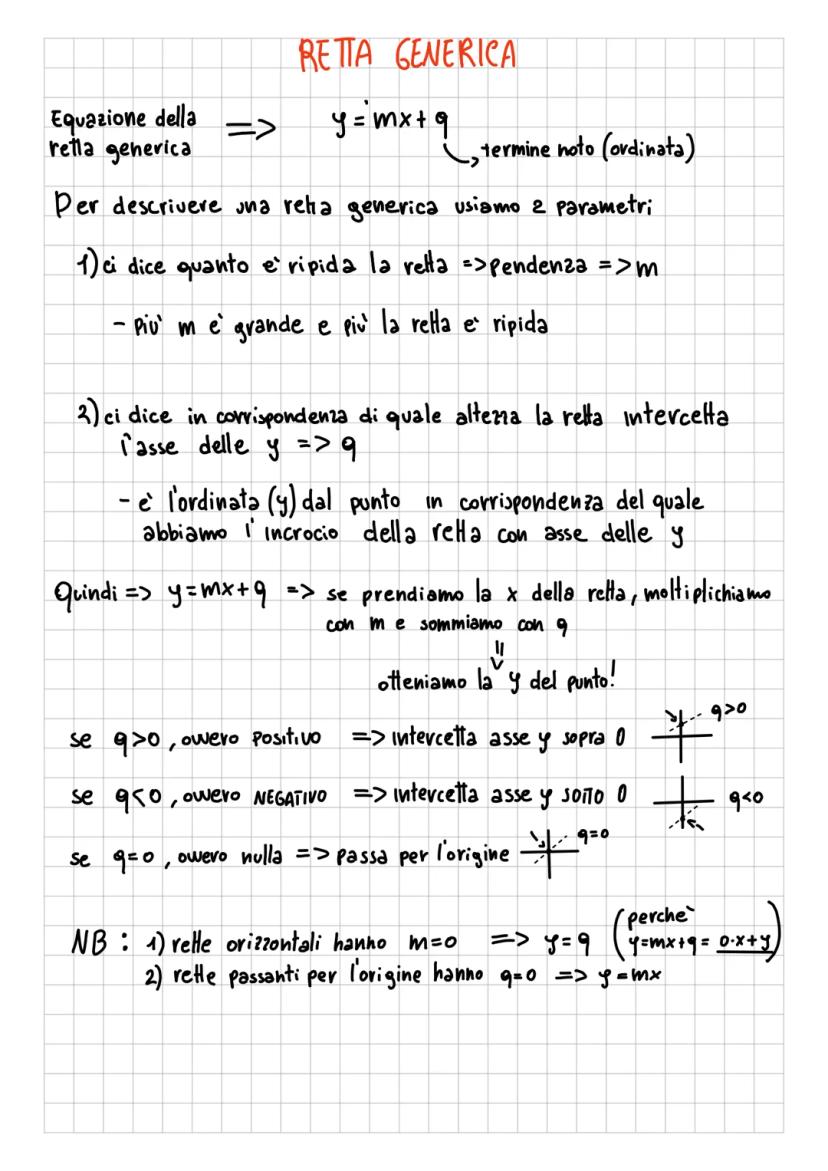 RETTA GENERICA
Equazione della
retta generica => y = mx + q
termine noto (ordinata)
Per descrivere una retta generica usiamo 2 parametri
1) ci dice quanto è ripida la retta => pendenza => m
- più m è grande e più la retta è ripida
2) ci dice in corrispondenza di quale altezza la retta intercetta
l'asse delle y => q
- è l'ordinata (y) dal punto in corrispondenza del quale
abbiamo l'incrocio della retta con asse delle y
Quindi => y = mx + q => se prendiamo la x della retta, moltiplichiamo
con m e sommiamo con q
otteniamo la y del punto!
se q>0, ovvero POSITIVO => intercetta asse y sopra 0 q>0
se q<0, ovvero NEGATIVO => intercetta asse y sotto 0 q<0
se q=0, ovvero nulla => passa per l'origine q=0
NB: 1) rette orizzontali hanno m=0 => y=q (perchè
y=mx+q= 0·x+y)
2) rette passanti per l'origine hanno q=0 => y=mx